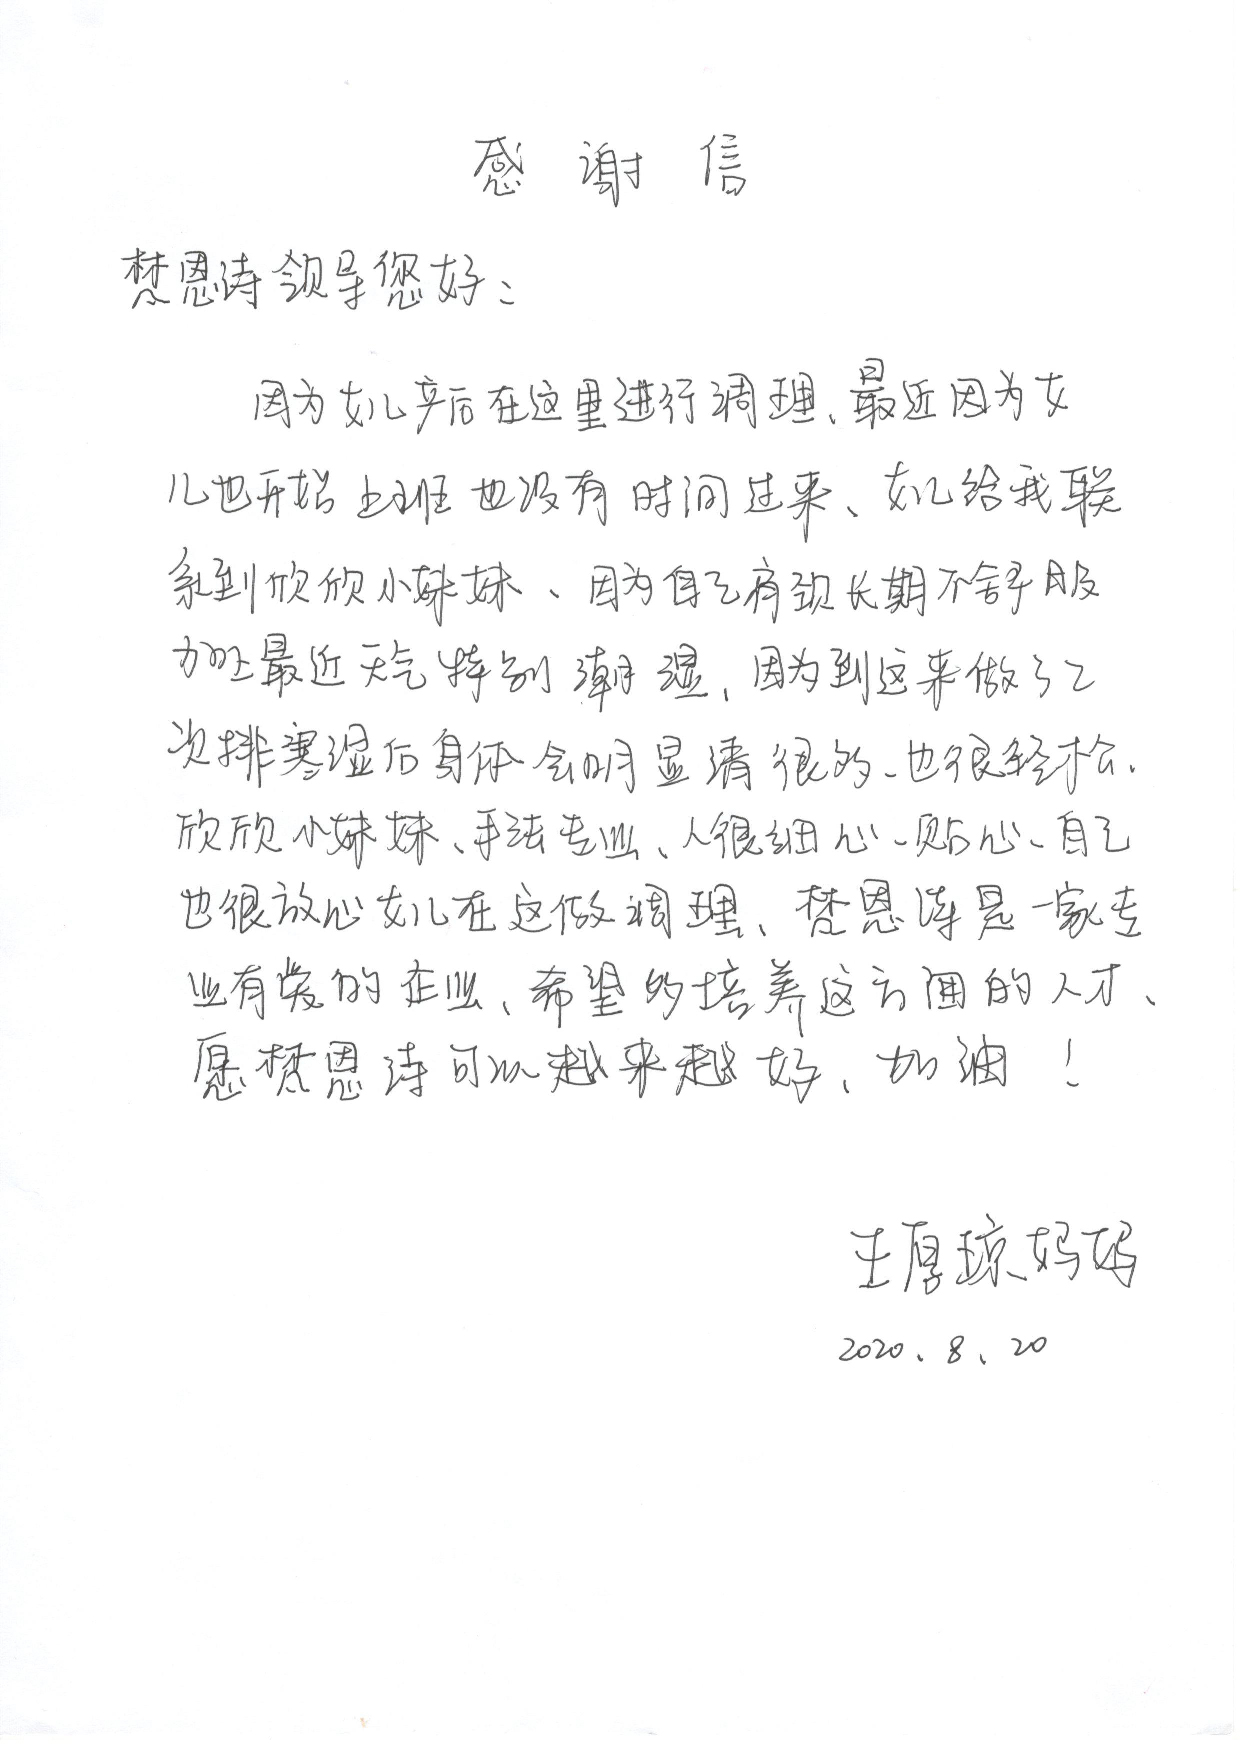 感谢信
梵恩诗领导您好：
因为女儿产后在这里进行调理、最近因为女
儿也开始上班也没有时间过来、女儿给我联
系到欣欣小妹妹、因为自己肩颈长期不舒服
加上最近天气特别潮湿，因为到这来做了2
次排寒湿后身体会明显清很的、也很轻松.
欣欣小妹妹、手法专业、人很细心、贴心、自己
也很放心女儿在这做调理、梵恩诗是一家专
业有爱的企业、希望多培养这方面的人才、
愿梵恩诗可以越来越好、加油！
王厚琼妈妈
2020、8、20